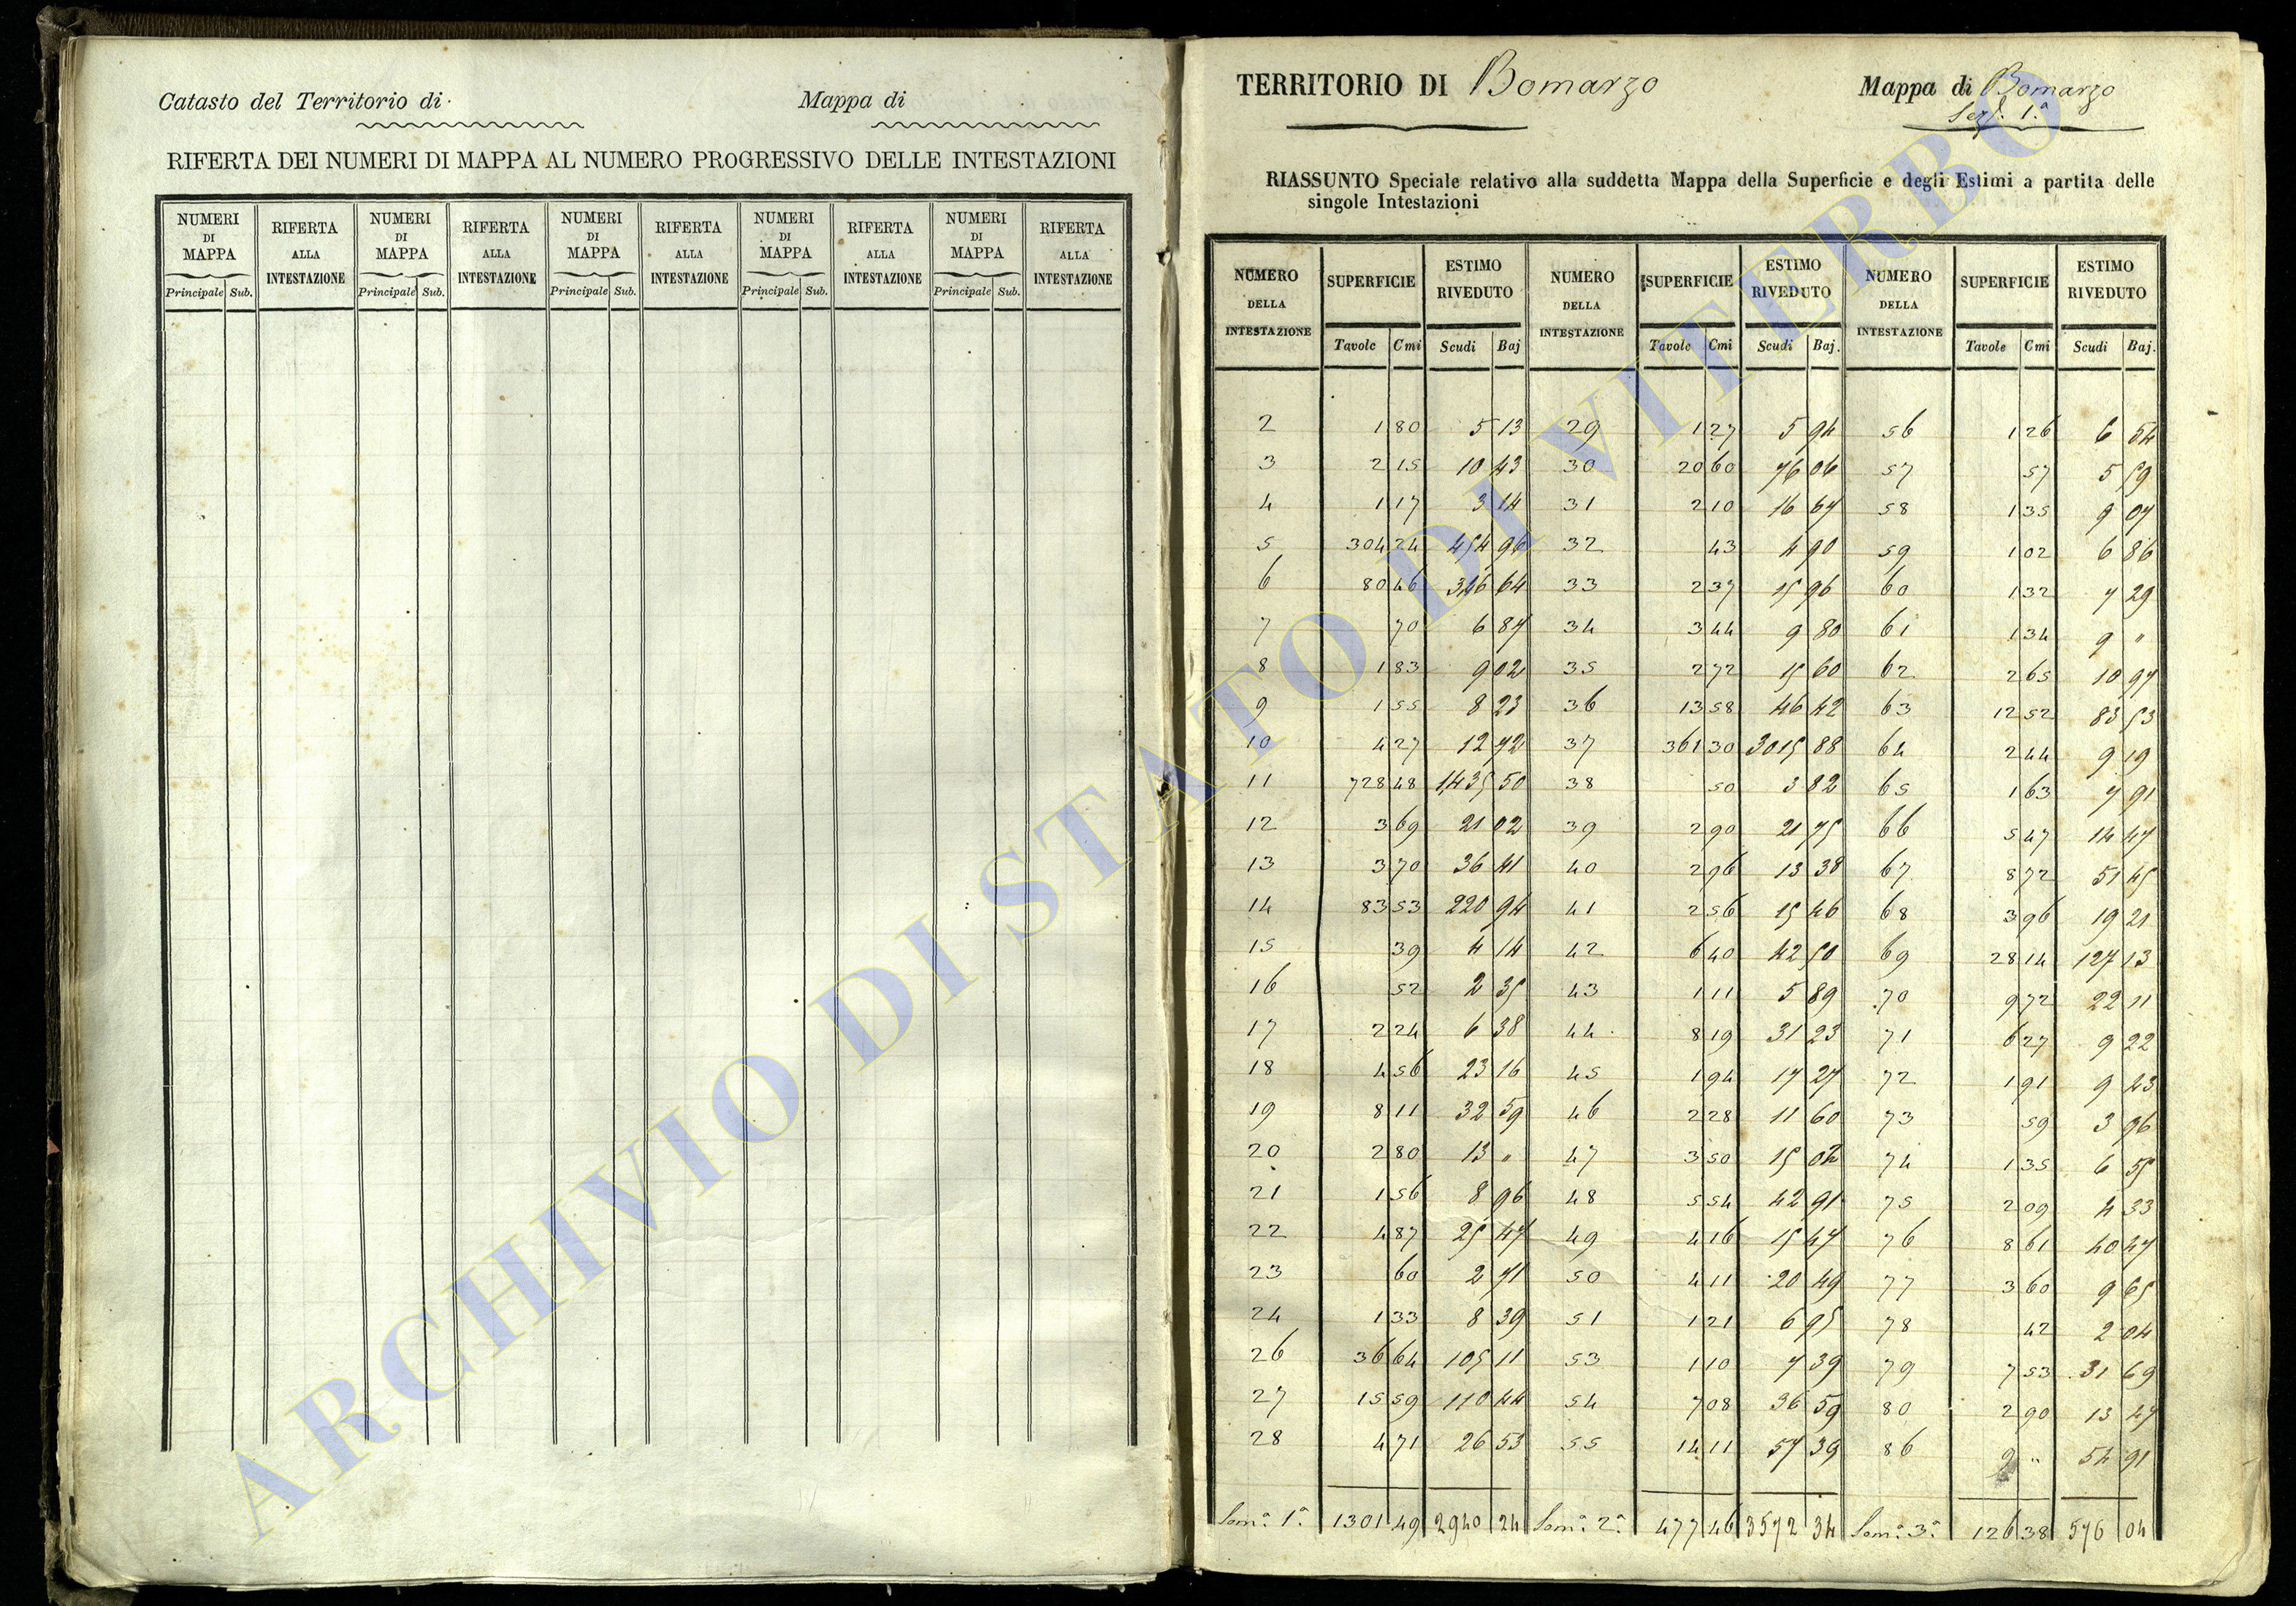 Catasto del Territorio di
Mappa di
RIFERTA DEI NUMERI DI MAPPA AL NUMERO PROGRESSIVO DELLE INTESTAZIONI
NUMERI DI MAPPA RIFERTA ALLA INTESTAZIONE NUMERI DI MAPPA RIFERTA ALLA INTESTAZIONE NUMERI DI MAPPA RIFERTA ALLA INTESTAZIONE NUMERI DI MAPPA RIFERTA ALLA INTESTAZIONE NUMERI DI MAPPA RIFERTA ALLA INTESTAZIONE
Principale Sub. Principale Sub. Principale Sub. Principale Sub. Principale Sub.
TERRITORIO DI Bomarzo
Mappa di Bomarzo
Sez. 1.ª
RIASSUNTO Speciale relativo alla suddetta Mappa della Superficie e degli Estimi a partita delle
singole Intestazioni
NUMERO DELLA INTESTAZIONE SUPERFICIE ESTIMO RIVEDUTO NUMERO DELLA INTESTAZIONE SUPERFICIE ESTIMO RIVEDUTO NUMERO DELLA INTESTAZIONE SUPERFICIE ESTIMO RIVEDUTO
Tavole Cmi Scudi Baj Tavole Cmi Scudi Baj. Tavole Cmi Scudi Baj.
2 1 80 5 13 29 1 27 5 94 56 1 26 6 54
3 2 15 10 43 30 20 60 76 06 57 57 5 59
4 1 17 3 14 31 2 10 16 67 58 1 35 9 07
5 304 24 454 96 32 43 4 90 59 1 02 6 86
6 80 46 346 64 33 2 37 15 96 60 1 32 7 29
7 70 6 87 34 3 44 9 80 61 1 34 9 "
8 1 83 9 02 35 2 72 15 60 62 2 65 10 97
9 1 55 8 23 36 13 58 46 42 63 12 52 83 53
10 4 27 12 72 37 361 30 3015 88 64 2 44 9 19
11 728 48 1435 50 38 50 3 82 65 1 63 7 91
12 3 69 21 02 39 2 90 21 75 66 5 47 14 47
13 3 70 36 41 40 2 96 13 38 67 8 72 51 45
14 83 53 220 94 41 2 56 15 46 68 3 96 19 21
15 39 4 14 42 6 40 42 50 69 28 14 127 13
16 52 2 35 43 1 11 5 89 70 9 72 22 11
17 2 24 6 38 44 8 19 31 23 71 6 27 9 22
18 4 56 23 16 45 1 94 17 27 72 1 91 9 43
19 8 11 32 59 46 2 28 11 60 73 59 3 96
20 2 80 13 " 47 3 50 15 02 74 1 35 6 55
21 1 56 8 96 48 5 54 42 91 75 2 09 4 33
22 4 87 25 47 49 4 16 15 47 76 8 61 40 47
23 60 2 71 50 4 11 20 49 77 3 60 9 65
24 1 33 8 39 51 1 21 6 95 78 42 2 04
26 36 64 105 11 53 1 10 7 39 79 7 53 31 69
27 15 59 110 44 54 7 08 36 59 80 2 90 13 47
28 4 71 26 53 55 14 11 57 39 86 9 " 54 91
Som.ª 1.ª 1301 49 2940 24 Som.ª 2.ª 477 46 3572 34 Som.ª 3.ª 126 38 576 04
ARCHIVIO DI STATO DI VITERBO